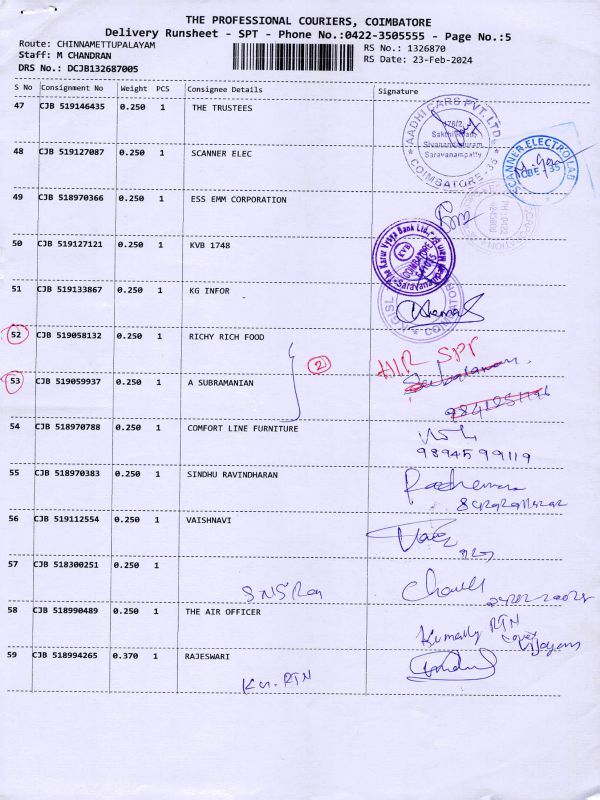 THE PROFESSIONAL COURIERS, COIMBATORE
Delivery Runsheet - SPT - Phone No.:0422-3505555 - Page No.:5
Route: CHINNAMETTUPALAYAM RS No.: 1326870
Staff: M CHANDRAN RS Date: 23-Feb-2024
DRS No.: DCJB132687005
S No Consignment No Weight PCS Consignee Details Signature
47 CJB 519146435 0.250 1 THE TRUSTEES
AADHI CARS PVT. LTD.
176/2
Saravanampatty
COIMBATORE-35
48 CJB 519127087 0.250 1 SCANNER ELEC
SCANNER ELECTRO LAB
CBE-35
49 CJB 518970366 0.250 1 ESS EMM CORPORATION
50 CJB 519127121 0.250 1 KVB 1748
The Karur Vysya Bank Ltd.,
KVB
COIMBATORE
Saravanampatti
51 CJB 519133867 0.250 1 KG INFOR
COIMBATOR
52 CJB 519058132 0.250 1 RICHY RICH FOOD
2 HIR SPR
53 CJB 519059937 0.250 1 A SUBRAMANIAN
54 CJB 518970788 0.250 1 COMFORT LINE FURNITURE
9894599119
55 CJB 518970383 0.250 1 SINDHU RAVINDHARAN
56 CJB 519112554 0.250 1 VAISHNAVI
57 CJB 518300251 0.250 1
58 CJB 518990489 0.250 1 THE AIR OFFICER
RTN
59 CJB 518994265 0.370 1 RAJESWARI
RTN